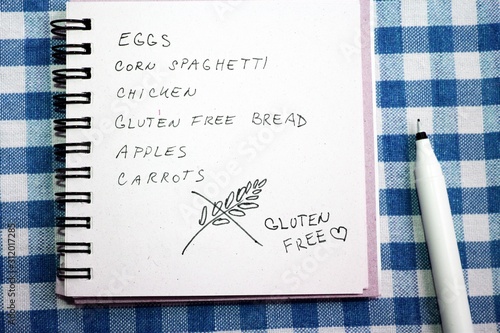 EGGS
CORN SPAGHETTI
CHICKEN
GLUTEN FREE BREAD
APPLES
CARROTS
GLUTEN
FREE♡
Adobe Stock | #312017285